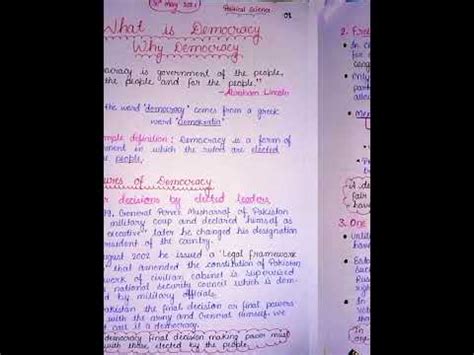 May
Political Science
01
What is Democracy
Why Democracy
cracy is government of the people,
the people and for the people."
-Abraham Lincoln
the word 'democracy' comes from a greek
word 'Demokratia'
mple definition: Democracy is a form of
ment in which the rulers are elected
the people.
ures of Democracy
r decisions by elected leaders
99, General Pervez Musharraf of Pakistan
military coup and declared himself as
executive, later he changed his designation
resident of the country.
ugust 2002 he issued a 'Legal framework
that amended the constitution of Pakistan
work of civilian cabinet is supervised
national security council which is dom-
d by military officials.
akistan the final decision or final powers
with the army and General himself, we
t call it a democracy.
democracy final decision making power must
with those elected by the people.
2. Free
In
Only
part
allo
Me
Po
A de
fair
hav
3. One
Bab